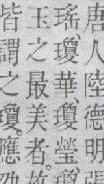 唐人陸德明張
瑤、瓊華、瓊瑩、瓊
玉之最美者。故
皆謂之瓊。應劭